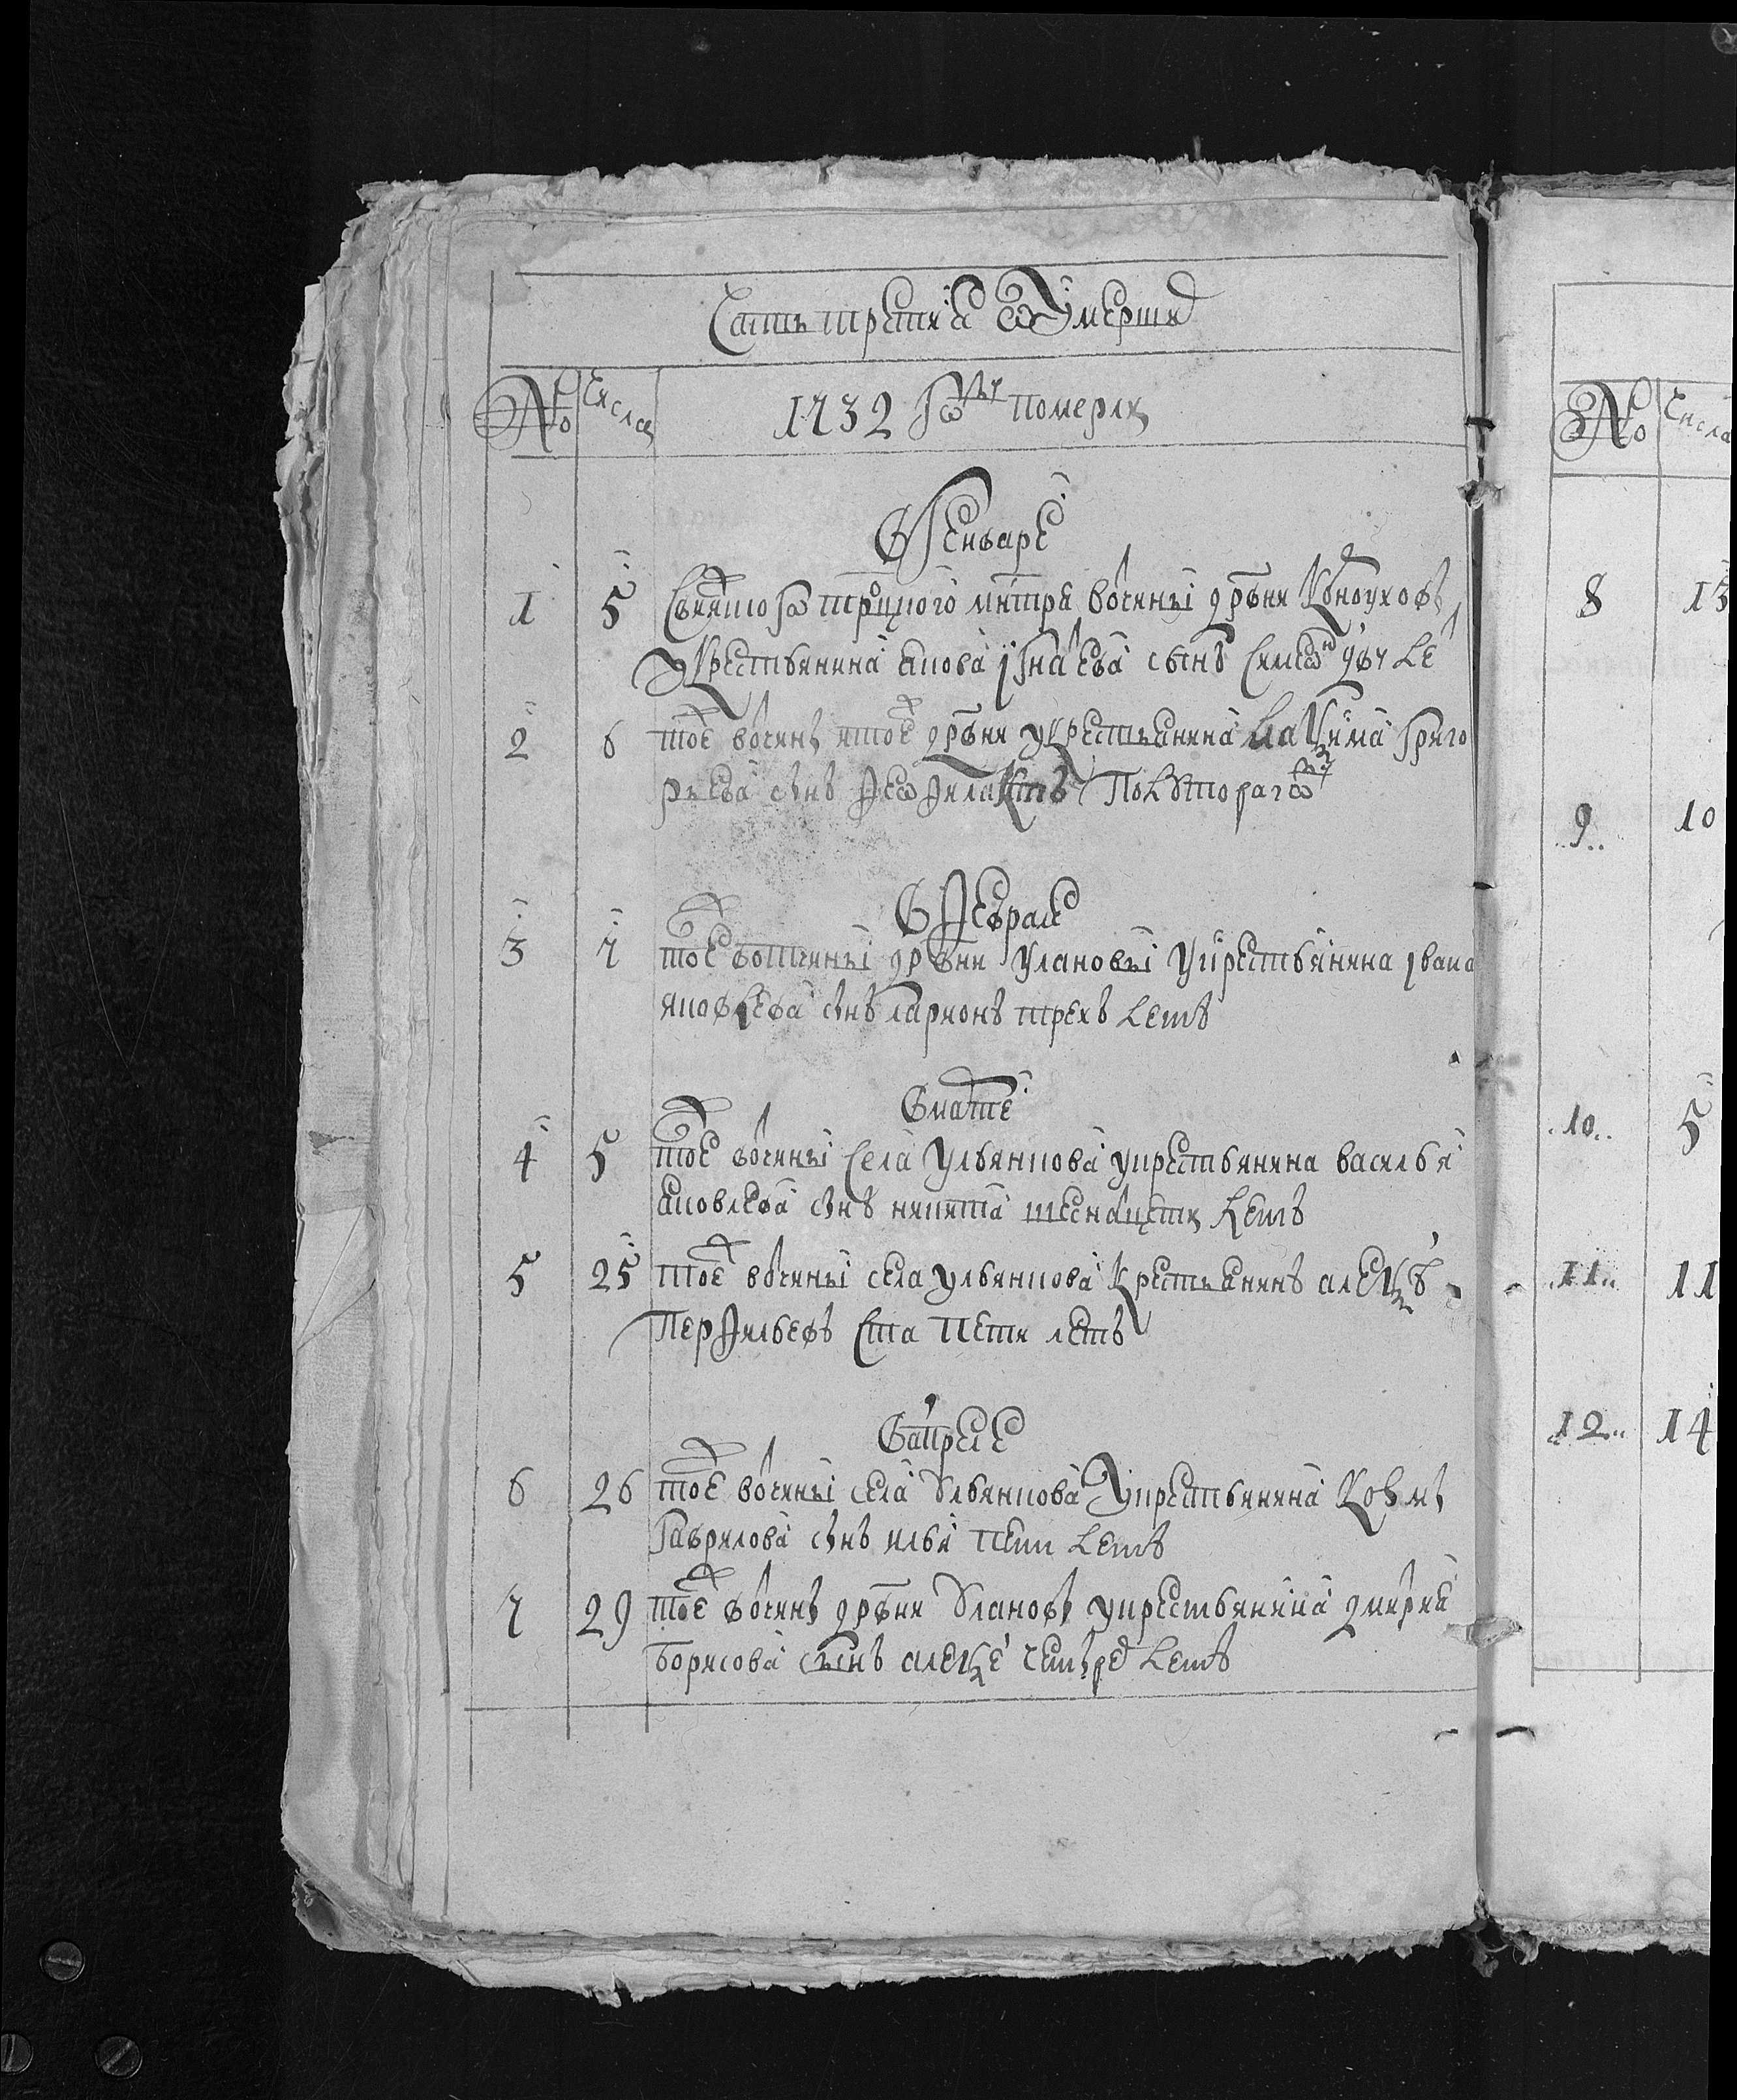 Часть третия ѿ Умерши
№ Числа 1732 году померли
В Генваре
1 5 Святого троицкого мнтря вочины дрвни Конюхов
у крестьянина акова игнаева сынъ Симеон
2 6 тое вочины и тое дрвни у крестьянина Иакима григо
рьева снъ Феофилактъ полутора году
В Феврале
3 7 тое вотчины дрвни Улановы у крестьянина ивана
яковлева снъ ларионъ трехъ летъ
В марте
4 5 тое вочины села Ульянкова у крестьянина василья
аковлева снъ никита шеснацети летъ
5 25 тое вочины села ульянкова крестьянинъ алекъ
Перфильевъ ста пети летъ
В апреле
6 26 тое вочины села Ульянкова у крестьянина Козмы
гаврилова снъ илья пети летъ
7 29 тое вочины дрвни Улановы у крестьянина дмирия
борисова сынъ алексе четыре летъ
№ Числа
8 13
9 10
10 5
11 11
12 14